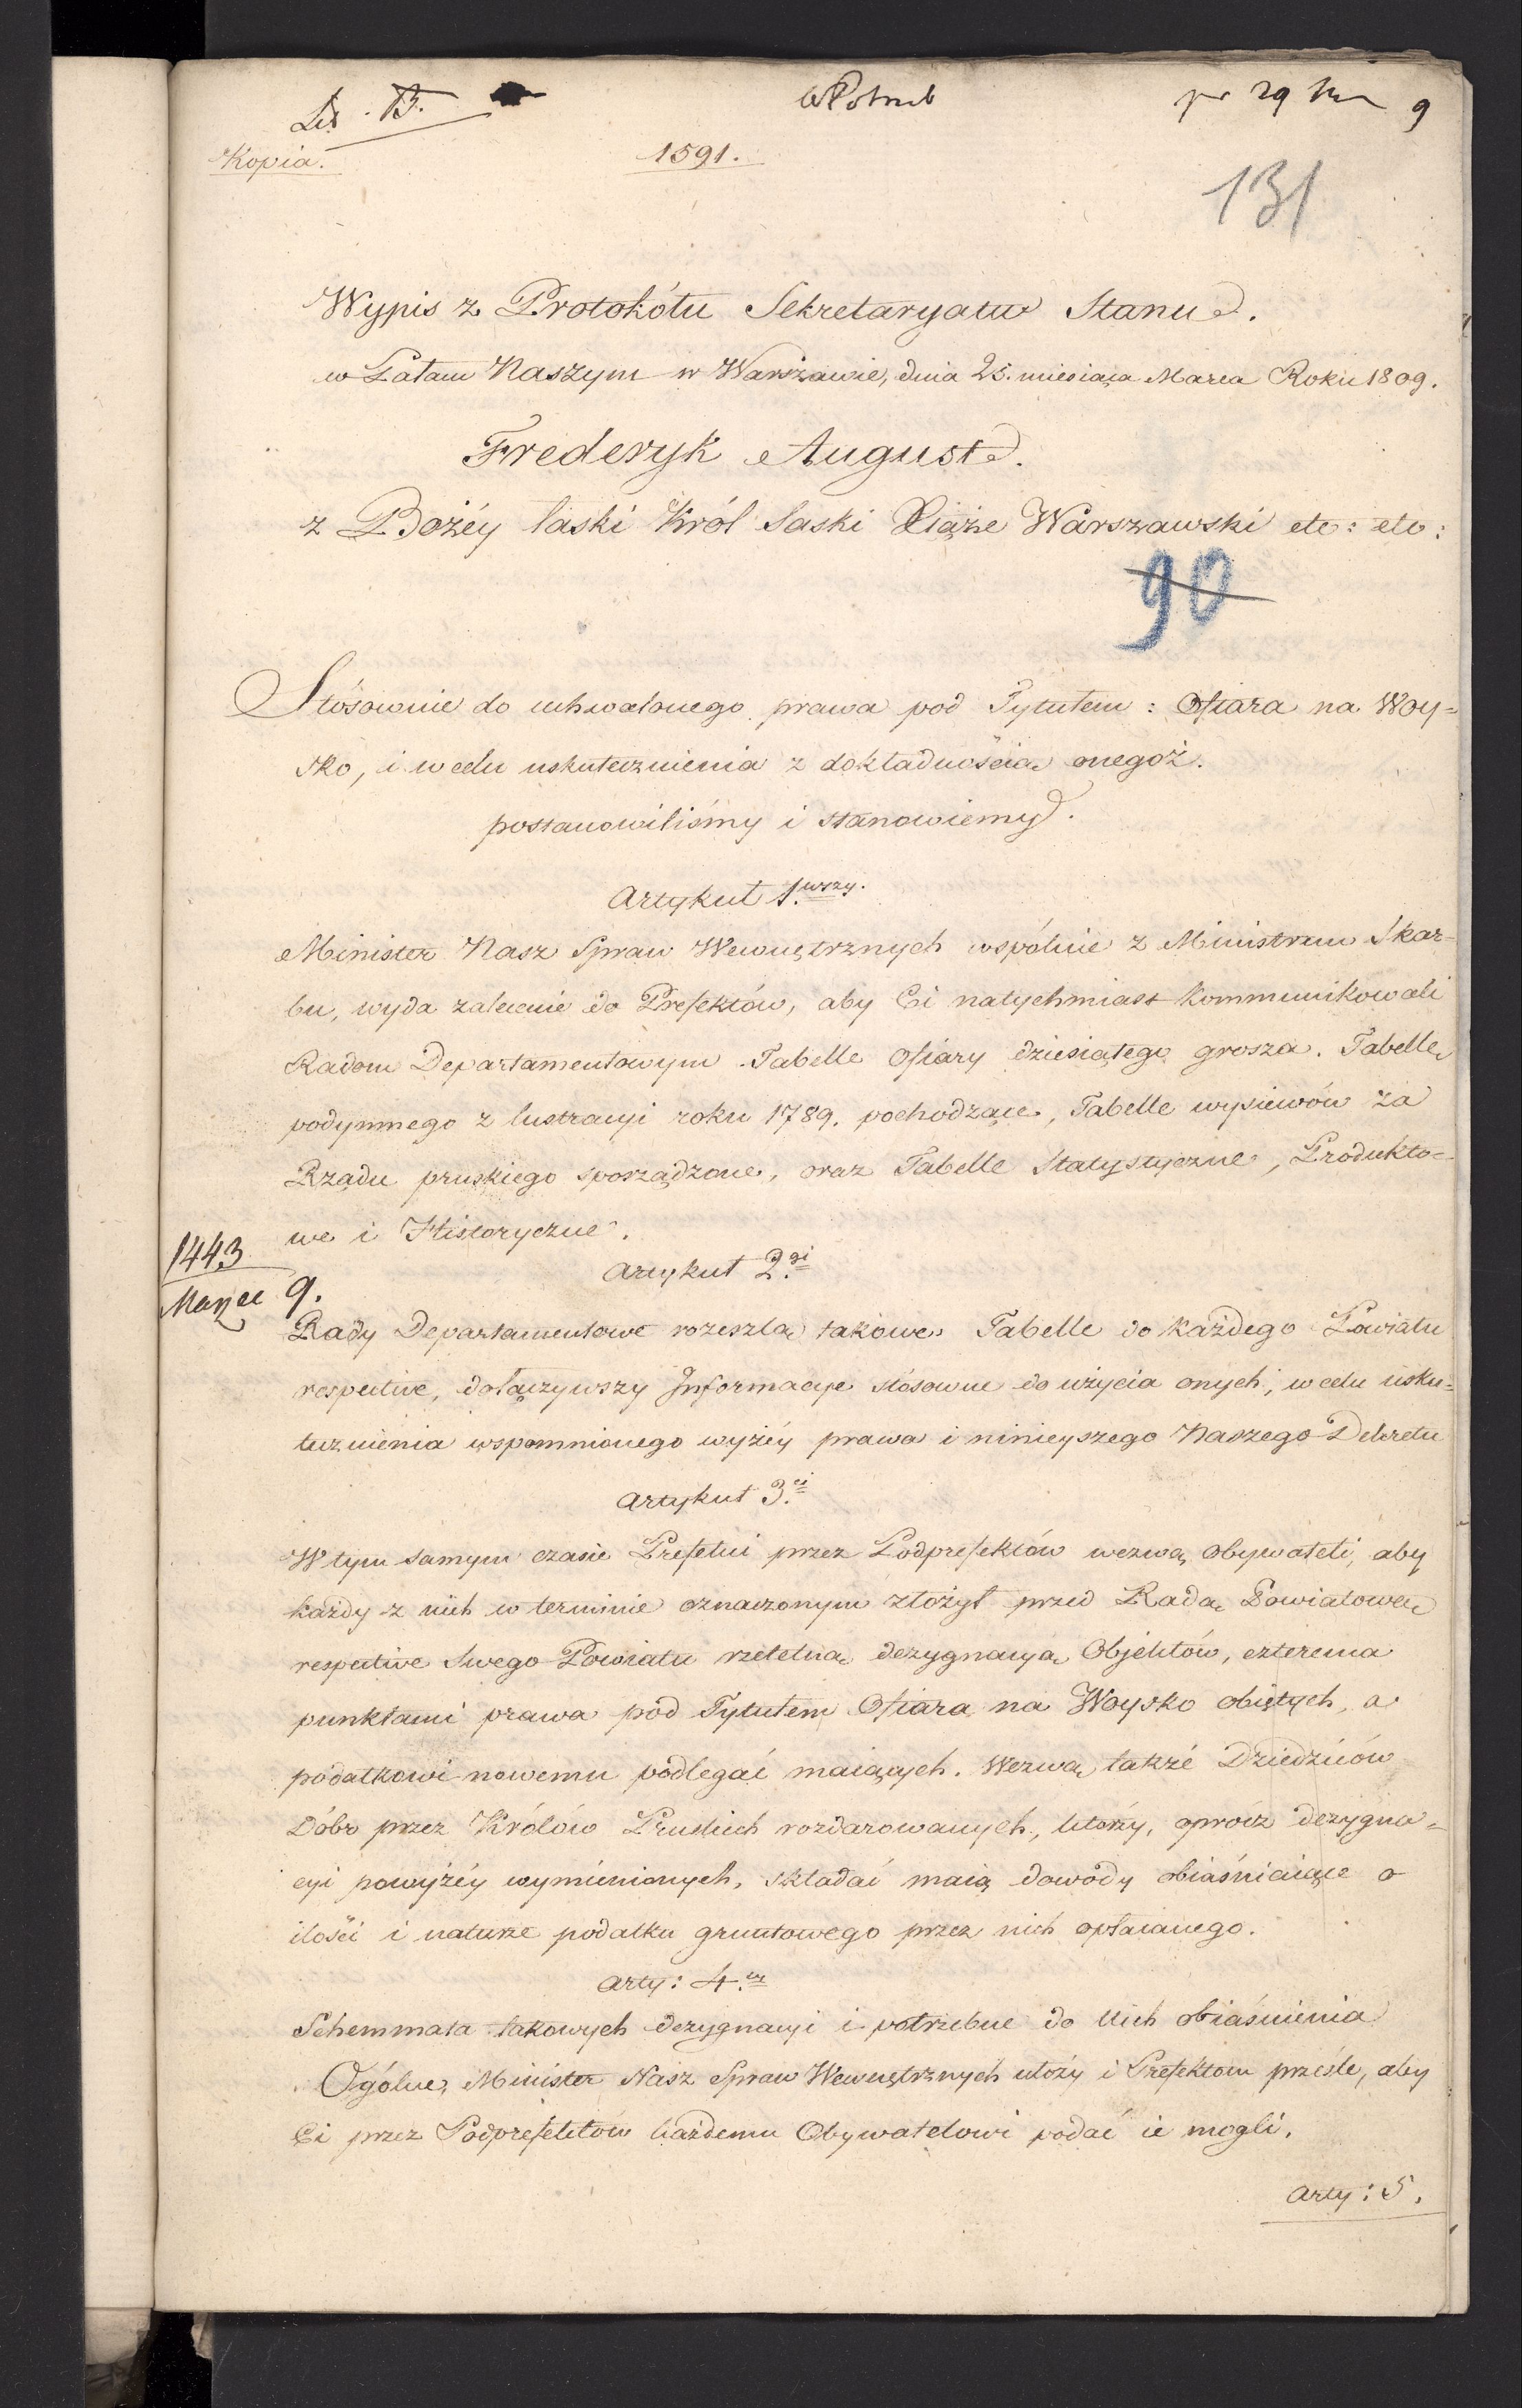 Lit. B.
9
Kopia.
1591.
131
Wypis z Protokółu Sekretaryatu Stanu.
w Pałacu Naszym w Warszawie, dnia 25. miesiąca Marca Roku 1809.
Frederyk August.
z Bożéy łaski Król Saski Xiąże Warszawski etc: etc:
90
Stósownie do uchwalonego prawa pod Tytułem: Ofiara na Woy=
sko, i w celu uskutecznienia z dokładnością onegoż.
postanowiliśmy i stanowiemy.
Artykuł 1.wszy.
Minister Nasz Spraw Wewnętrznych wspólnie z Ministrem Skar=
bu, wyda zalecenie do Prefektów, aby Ci natychmiast kommunikowali
Radom Departamentowym Tabelle Ofiary dziesiątego grosza. Tabelle
podymnego z lustracyi roku 1789. pochodzące, Tabelle wysiewów za
Rządu pruskiego sporządzone, oraz Tabelle Statystyczne, Produkto=
we i Historyczne.
1443
Marca 9.
Artykuł 2.gi
Rady Departamentowe rozeszlą takowe Tabelle do każdego Powiatu
respective, dołączywszy Informacye stósowne do użycia onych, w celu usku=
tecznienia wspomnionego wyżéy prawa i ninieyszego Naszego Dekretu
Artykuł 3.ci
W tym samym czasie Prefekci przez Podprefektów wezwą Obywateli, aby
każdy z nich w terminie oznaczonym złożył przed Radą Powiatową
respective Swego Powiatu rzetelną dezygnacyą Objektów, czterema
punktami prawa pod Tytułem Ofiara na Woysko obiętych, a
podatkowi nowemu podlegać maiących. Wezwą także Dziedziców
Dóbr przez Królów Pruskich rozdarowanych, którzy, oprócz dezygna=
cyi powyżéy wymienionych, składać maią dowody obiaśniaiące o
ilości i naturze podatku gruntowego przez nich opłacanego.
Arty: 4.ty
Schemmata takowych dezygnacyi i potrzebne do nich obiaśnienia
Ogólne, Minister Nasz Spraw Wewnętrznych ułoży i Prefektom prześle, aby
Ci przez Podprefektów każdemu Obywatelowi podać ie mogli.
Arty: 5.